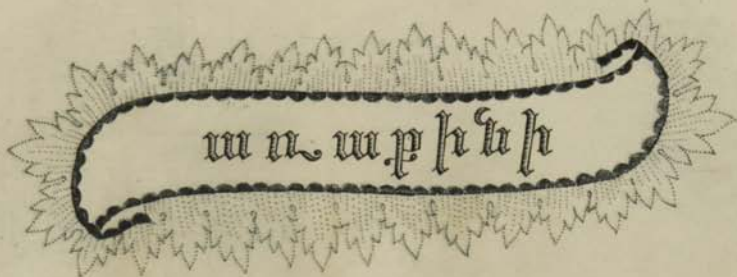 առաքինի